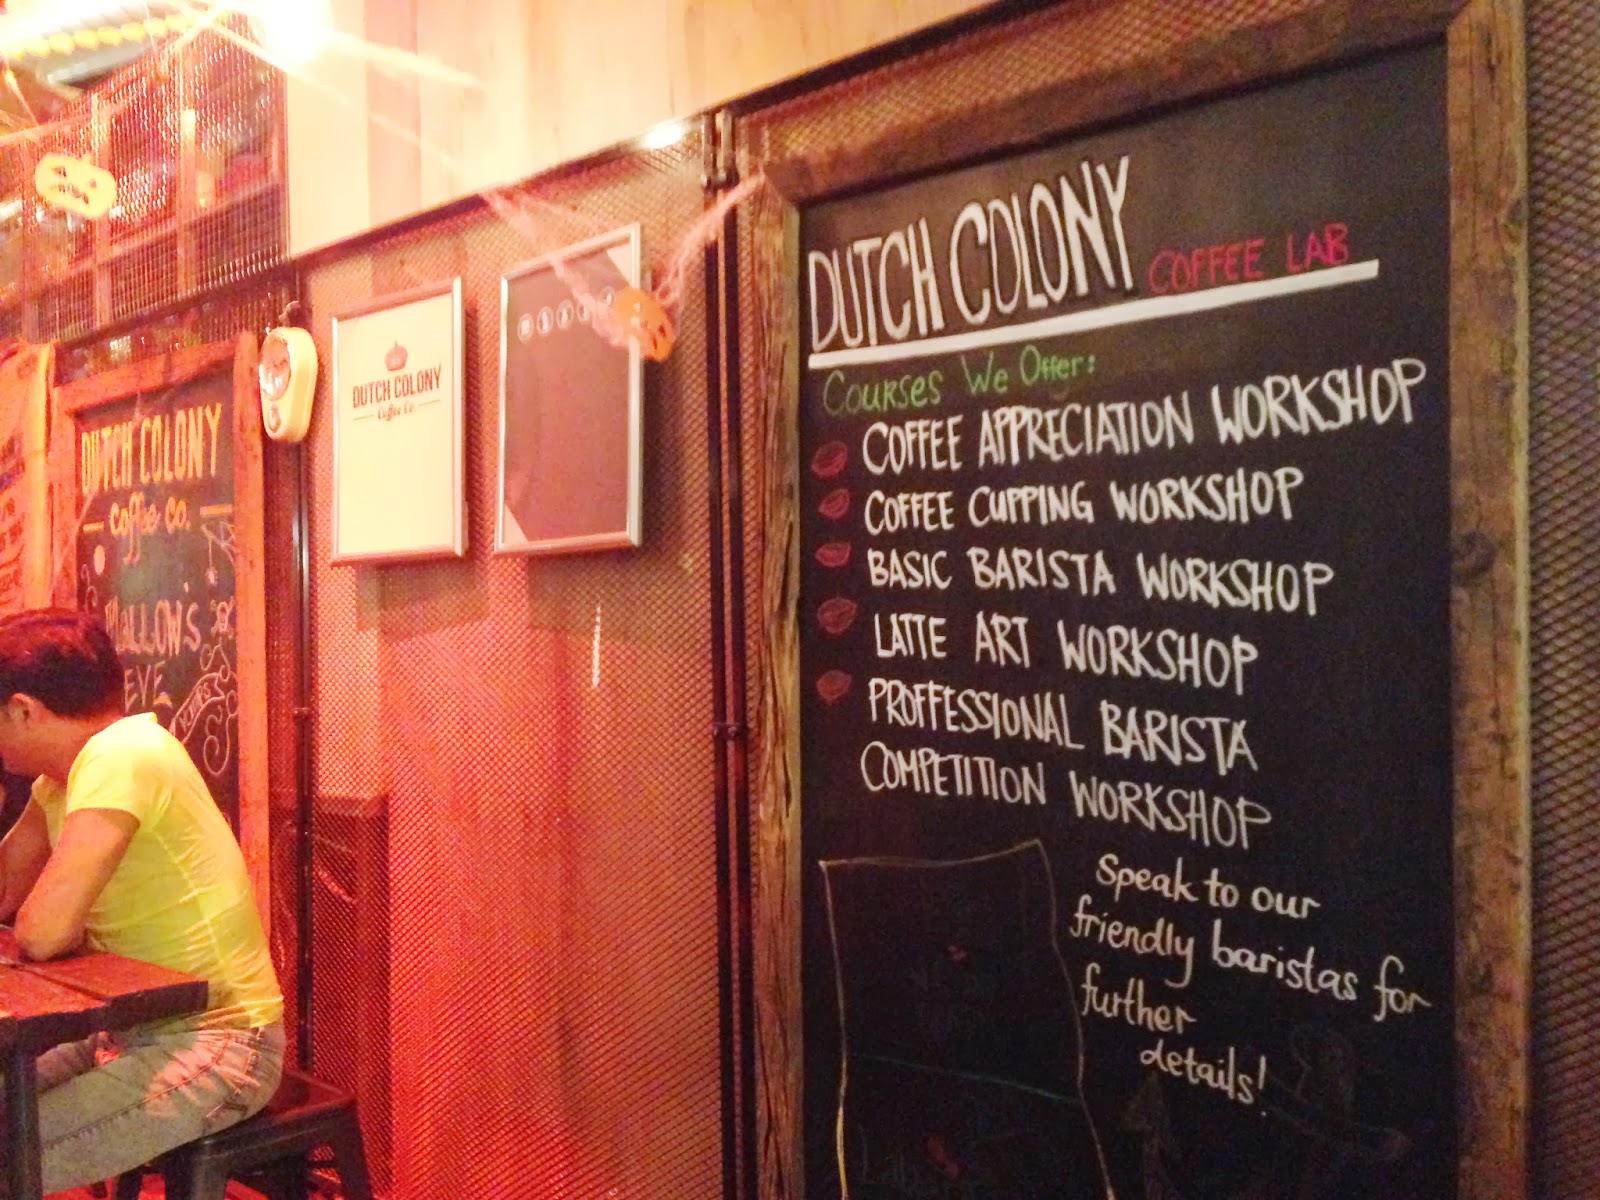 DUTCH COLONY COFFEE LAB
Courses We Offer:
COFFEE APPRECIATION WORKSHOP
COFFEE CUPPING WORKSHOP
BASIC BARISTA WORKSHOP
LATTE ART WORKSHOP
PROFFESSIONAL BARISTA
COMPETITION WORKSHOP
Speak to our
friendly baristas for
further
details!
DUTCH COLONY
Coffee Co.
DUTCH COLONY
coffee co.
HALLOW'S
EVE